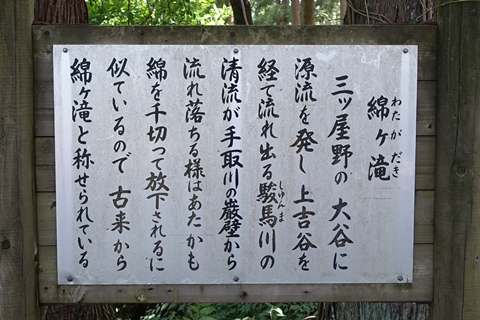 綿ヶ滝
わたがだき
三ツ屋野の大谷に
源流を発し上吉谷を
経て流れ出る駿馬川の
しゅんま
清流が手取川の巌壁から
流れ落ちる様はあたかも
綿を千切って放下されるに
似ているので古来から
綿ヶ滝と称せられている